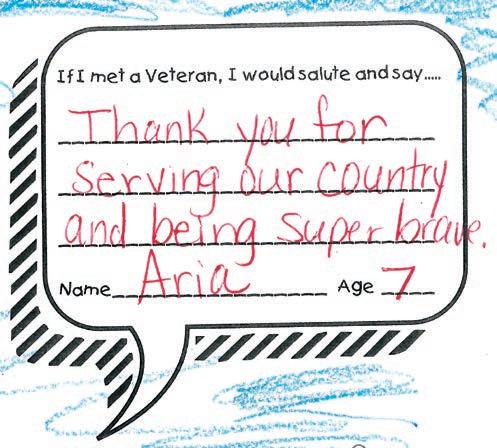 If I met a Veteran, I would salute and say.....
Thank you for
serving our country
and being super brave.
Name Aria Age 7